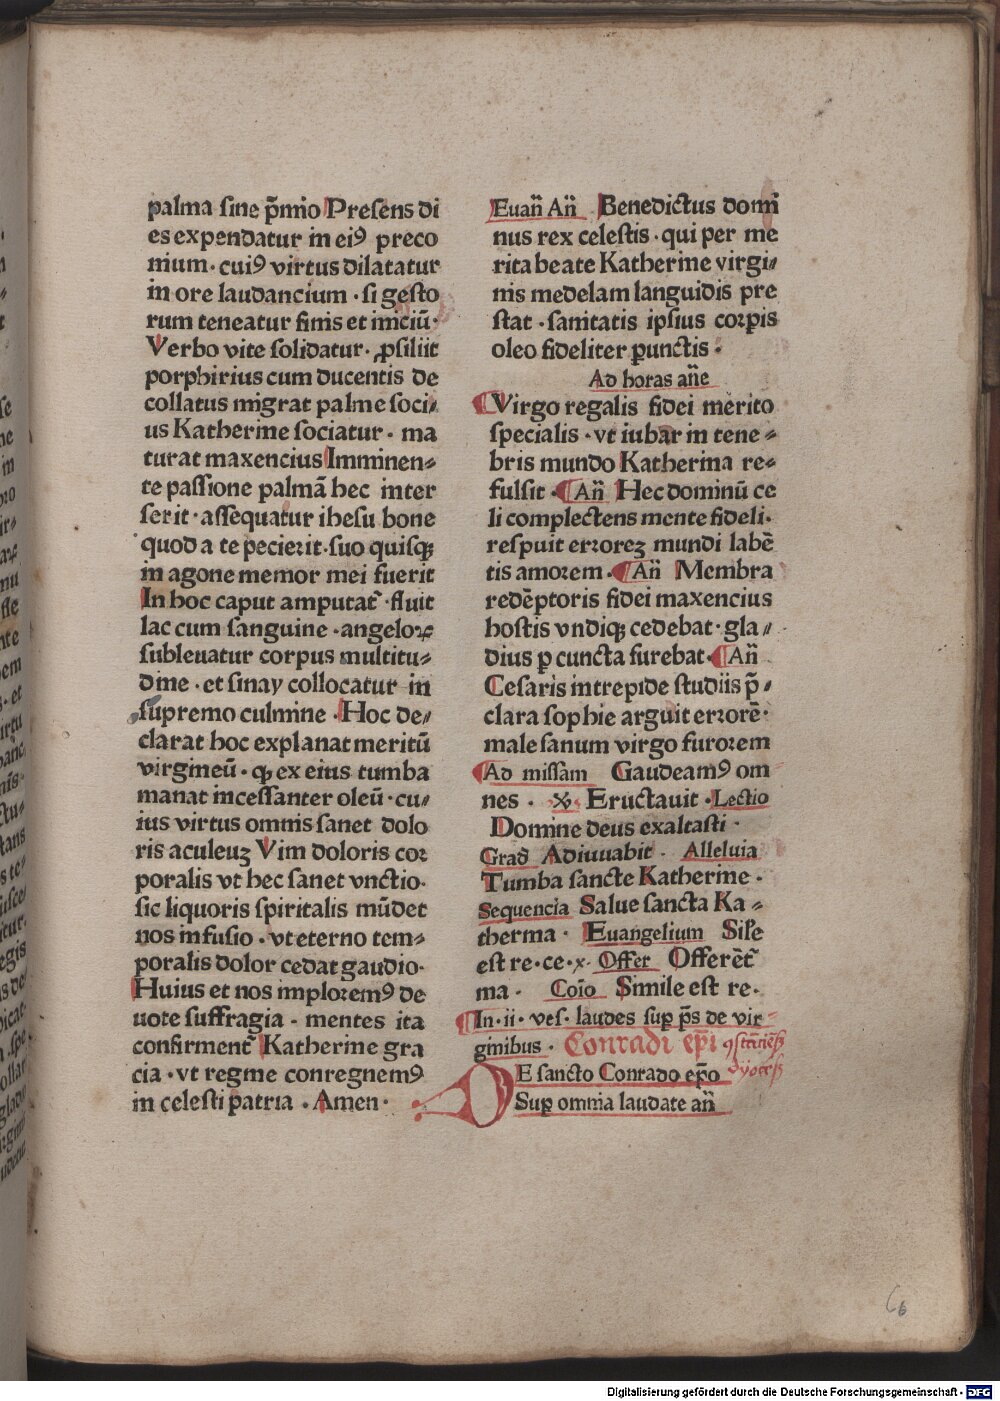 palma sine p̃mio Presens di
es expendatur in eiꝰ preco
nium · cuiꝰ virtus dilatatur
in ore laudancium · si gesto
rum teneatur finis et iniciū ·
Verbo vite solidatur · ꝓsiliit
porphirius cum ducentis de
collatus migrat palme soci⸗
us Katherine sociatur · ma
turat maxencius Imminen⸗
te passione palmā hec inter
serit · assequatur ihesu bone
quod a te pecierit · suo quisqꝫ
in agone memor mei fuerit
In hoc caput amputat᷑ · fluit
lac cum sanguine · angeloꝝ
subleuatur corpus multitu⸗
dine · et sinay collocatur in
supremo culmine · Hoc de⸗
clarat hoc explanat meritū
virgineū · qꝫ ex eius tumba
manat incessanter oleū · cu⸗
ius virtus omnis sanet dolo
ris aculeuꝫ Vim doloris cor
poralis vt hec sanet vnctio ·
sic liquoris spiritalis mūdet
nos infusio · vt eterno tem⸗
poralis dolor cedat gaudio ·
Huius et nos imploremꝰ de
uote suffragia · mentes ita
confirment᷑ Katherine gra
cia · vt regine conregnemꝰ
in celesti patria · Amen ·
Euañ Añ Benedictus domi
nus rex celestis · qui per me
rita beate Katherine virgi⸗
nis medelam languidis pre
stat · sanitatis ipsius corꝑis
oleo fideliter ꝑunctis ·
Ad horas añe
Virgo regalis fidei merito
specialis · vt iubar in tene⸗
bris mundo Katherina re⸗
fulsit · Añ Hec dominū ce
li complectens mente fideli ·
respuit erroreꝫ mundi labē
tis amorem · Añ Membra
redēptoris fidei maxencius
hostis vndiqꝫ cedebat · gla⸗
dius ꝑ cuncta furebat · Añ
Cesaris intrepide studiis p̃⸗
clara sophie arguit errorē ·
male sanum virgo furorem
Ad missam Gaudeamꝰ om
nes · xp̄ · Eructauit · Lectio
Domine deus exaltasti ·
Grad̃ Adiuuabit · Alleluia
Tumba sancte Katherine ·
Sequencia Salue sancta Ka⸗
therina · Euangelium Sil̃e
est re · ce · x · Offer Offerēt᷑
ma · Coīo Simile est re ·
In · ii · ves · laudes suꝑ p̄s de vir
ginibus · Conradi ep̄i
DE sancto Conrado ep̄o
Suꝑ omnia laudate añ
66
Digitalisierung gefördert durch die Deutsche Forschungsgemeinschaft - DFG